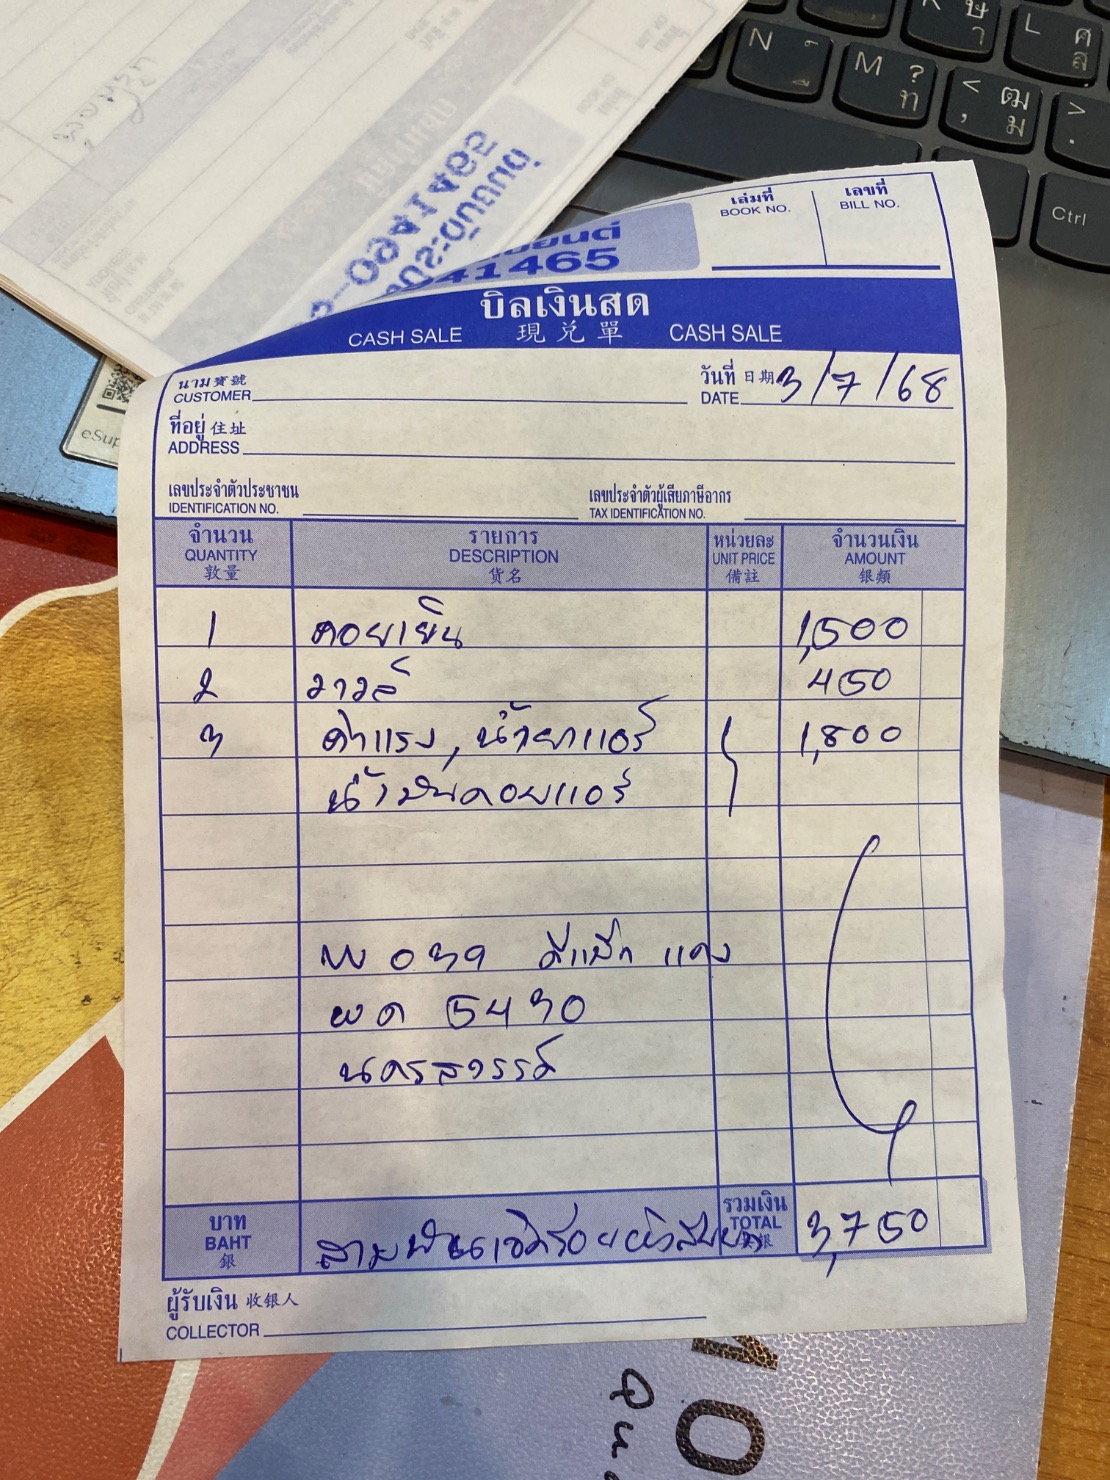 เล่มที่
BOOK NO.
เลขที่
BILL NO.
41465
บิลเงินสด
CASH SALE 現兌單 CASH SALE
นาม寶號
CUSTOMER
วันที่ 日期 3/7/68
DATE
ที่อยู่ 住址
ADDRESS
เลขประจำตัวประชาชน
IDENTIFICATION NO.
เลขประจำตัวผู้เสียภาษีอากร
TAX IDENTIFICATION NO.
จำนวน รายการ หน่วยละ จำนวนเงิน
QUANTITY DESCRIPTION UNIT PRICE AMOUNT
敦量 貨名 備註 銀類
1 คอยเย็น 1,500
2 วาวล์ 450
3 ค่าแรง, น้ำยาแอร์ 1,800
น้ำมันคอยแอร์
ดีแม็ก แดง
ผด 5430
นครสวรรค์
บาท รวมเงิน
BAHT สามพันเจ็ดร้อยห้าสิบบาท TOTAL 3,750
銀
ผู้รับเงิน 收銀人
COLLECTOR
N ื
M ? ท
< , ฒ ม
L ศ ส
Ctrl